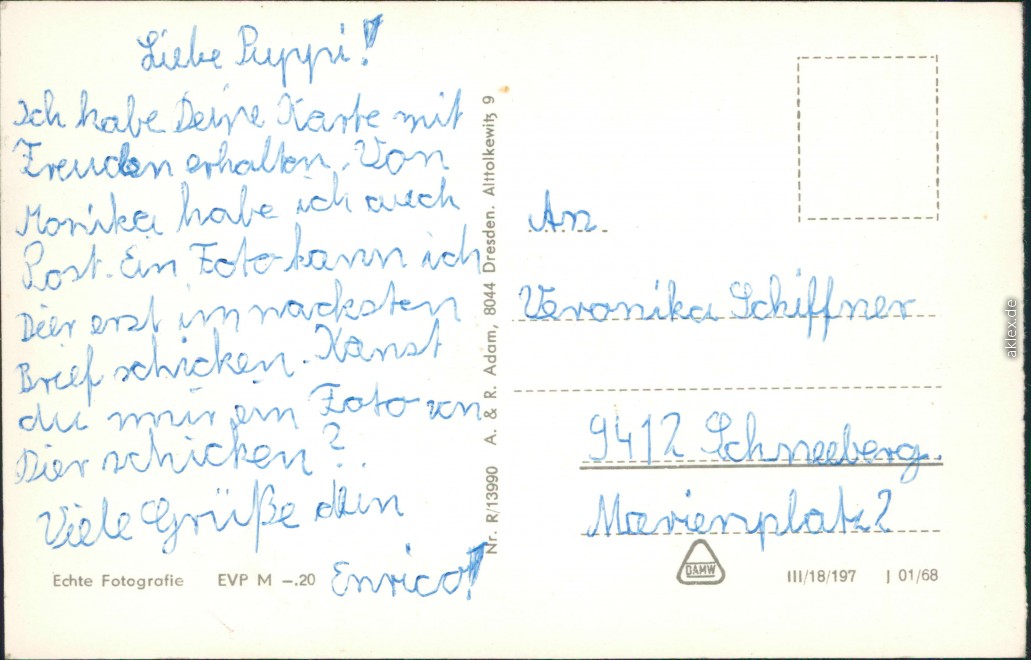 Liebe Puppi!
Ich habe Deine Karte mit
Freuden erhalten. Von
Monika habe ich auch
Post. Ein Foto kann ich
Dier erst im nachsten
Brief schicken. Kanst
du mir ein Foto von
Dier schicken?
Viele Grüße dein
Enrico!
Echte Fotografie EVP M –.20
Nr. R/13990 A. & R. Adam, 8044 Dresden. Alttolkewitz 9
An
Veronika Schiffner
9412 Schneeberg.
Marienplatz 2
DAMW
III/18/197 J 01/68
aklex.de